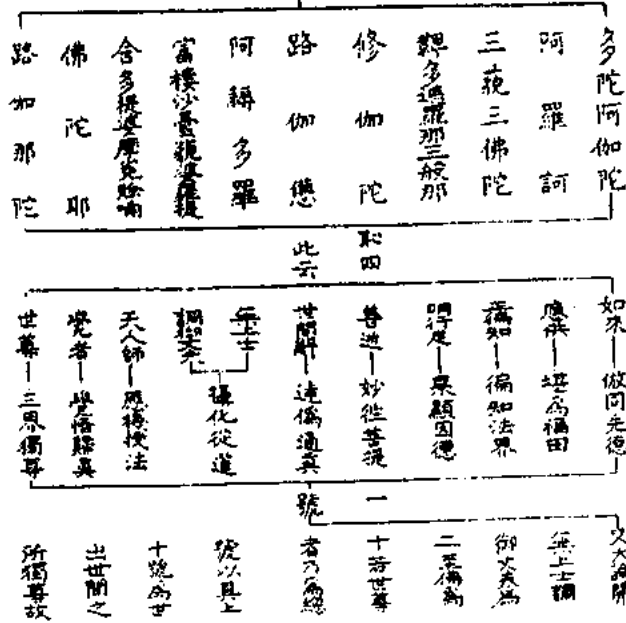 多陀阿伽陀
阿羅訶
三藐三佛陀
鞞多遮羅那三般那
修伽陀
路伽憊
阿耨多羅
富樓沙曇藐婆羅提
舍多提婆魔㝹賒喃
佛陀耶
路伽那陀
此云
如來 倣同先德
應供 堪為福田
徧知 徧知法界
明行足 果顯因德
善逝 妙徃菩提
世間解 達偽通真
無上士
調御丈夫
攝化從道
天人師 應機授法
覺者 覺悟歸真
世尊 三界獨尊
一
號
又大論開
無上士調
御丈夫為
二至佛為
十若世尊
者乃為總
號以具上
十號為世
出世間之
所獨尊故